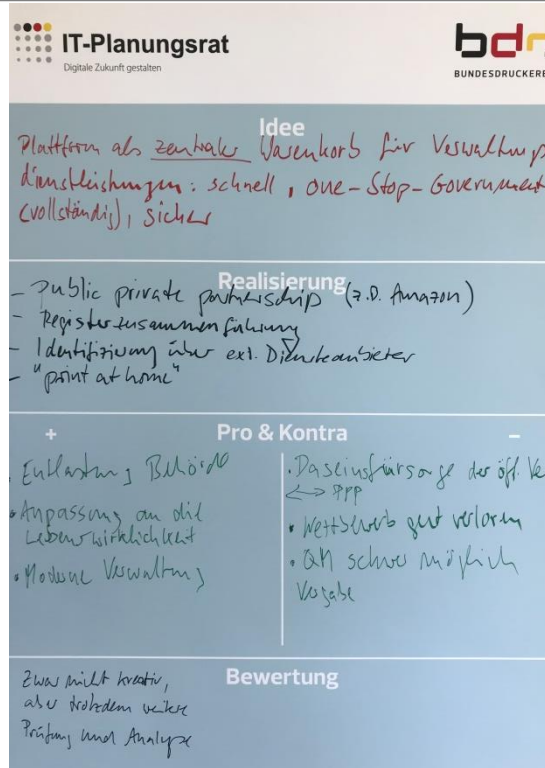 IT-Planungsrat
Digitale Zukunft gestalten
bdr
BUNDESDRUCKERE
Idee
Plattform als zentraler Warenkorb für Verwaltungs
dienstleistungen: schnell, one-Stop-Government
(vollständig), sicher
Realisierung
- public private partnerschip (z.B. Amazon)
- Registerzusammenführung
- Identifizierung über ext. Diensteanbieter
- "print at home"
+ Pro & Kontra -
• Entlastung Behörde
• Anpassung an die
Lebenswirklichkeit
• Moderne Verwaltung
• Daseinsfürsorge der öff. Ve
<-> PPP
• Wettbewerb geht verloren
• QM schwer möglich
Vergabe
Bewertung
Zwar nicht kreativ,
aber trotzdem weitere
Prüfung und Analyse